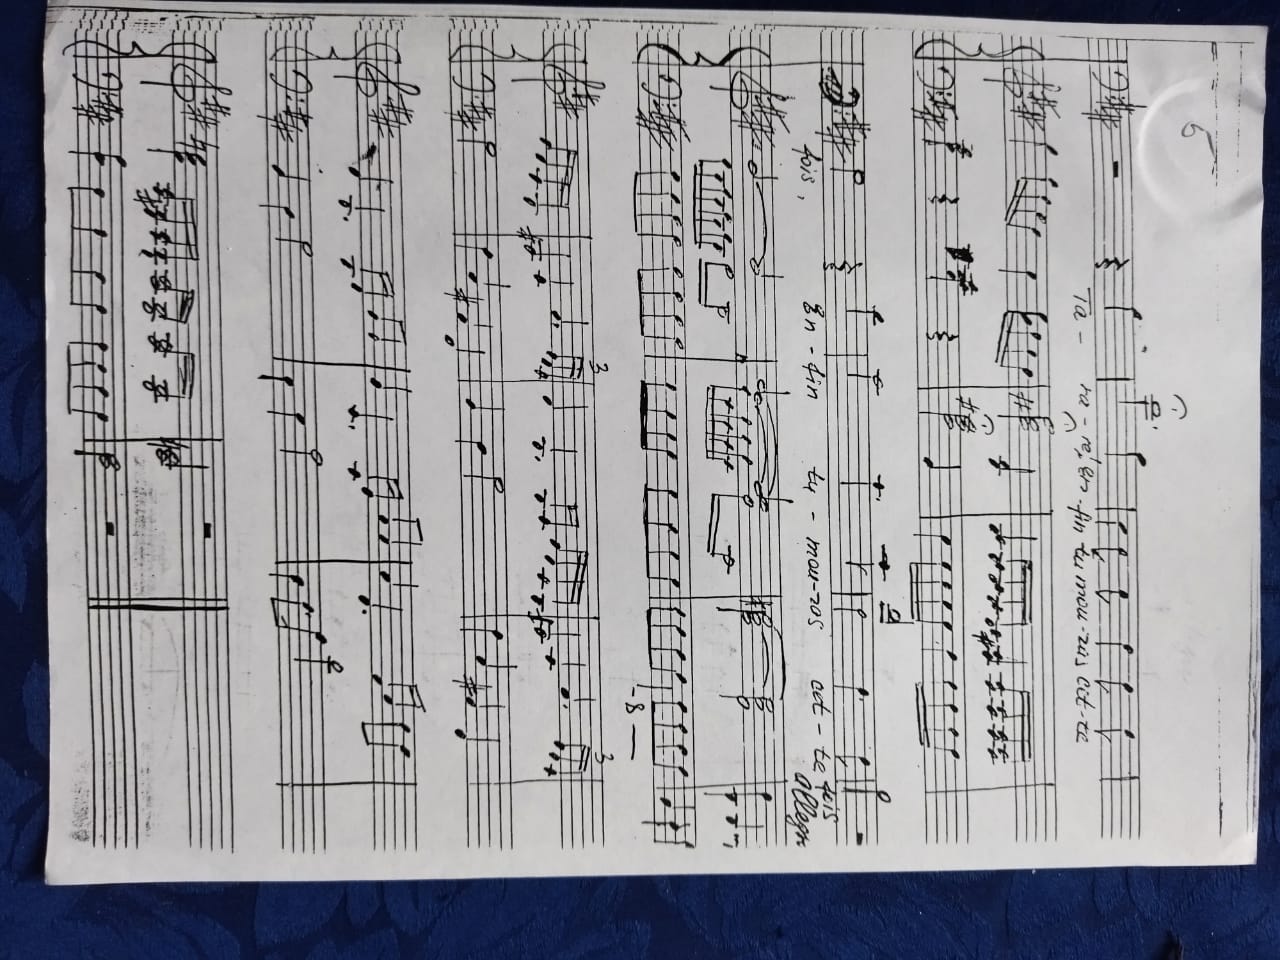 6
Ta - ra - re! En - fin tu mou - ras cet - te
fois. En - fin tu - mou - ras cet - te fois
Allegro
3
3
- 8 -